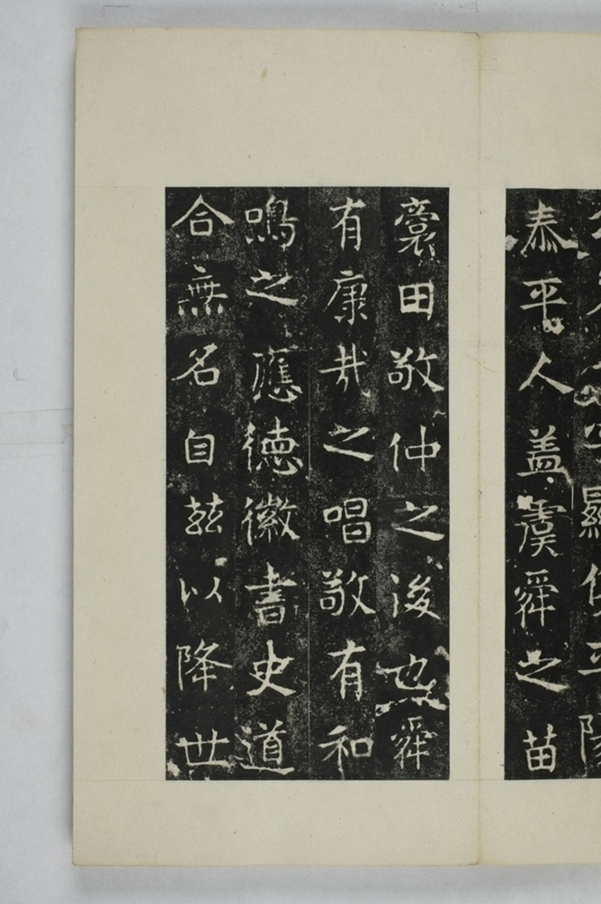 顯
泰平人盖虞舜之苗
裔田敬仲之後也舜
有康哉之唱敬有和
鳴之應德徽書史道
合無名自茲以降世